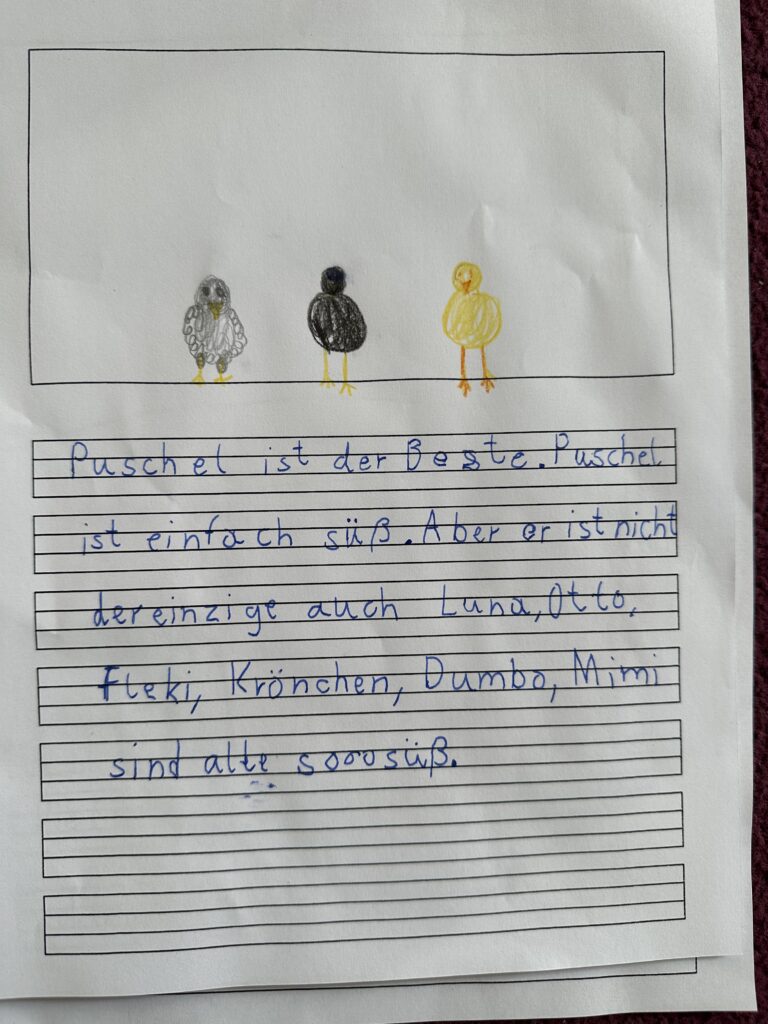 Puschel ist der Beste. Puschel
ist einfach süß. Aber er ist nicht
der einzige auch Luna, Otto,
Fleki, Krönchen, Dumbo, Mimi
sind alle sooo süß.